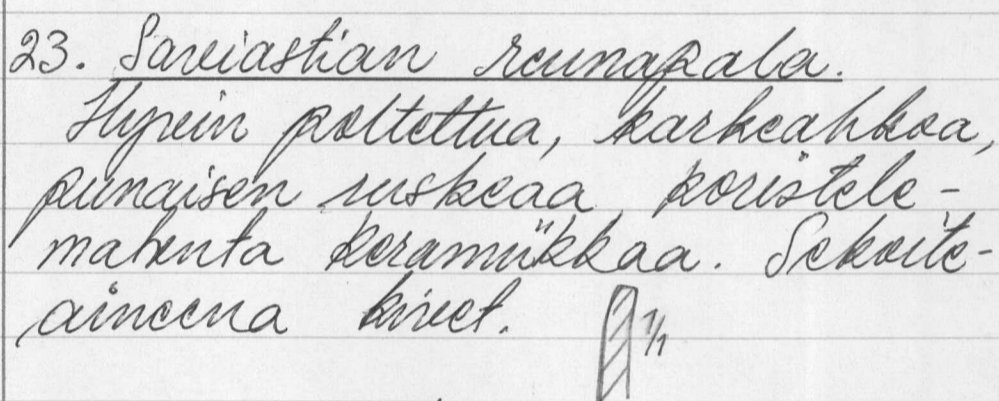 23. Saviastian reunapala.
Hyvin poltettua, karkeahkoa,
punaisen ruskeaa koristele-
matonta keramiikkaa. Sekoite-
aineena kivet.
1/1